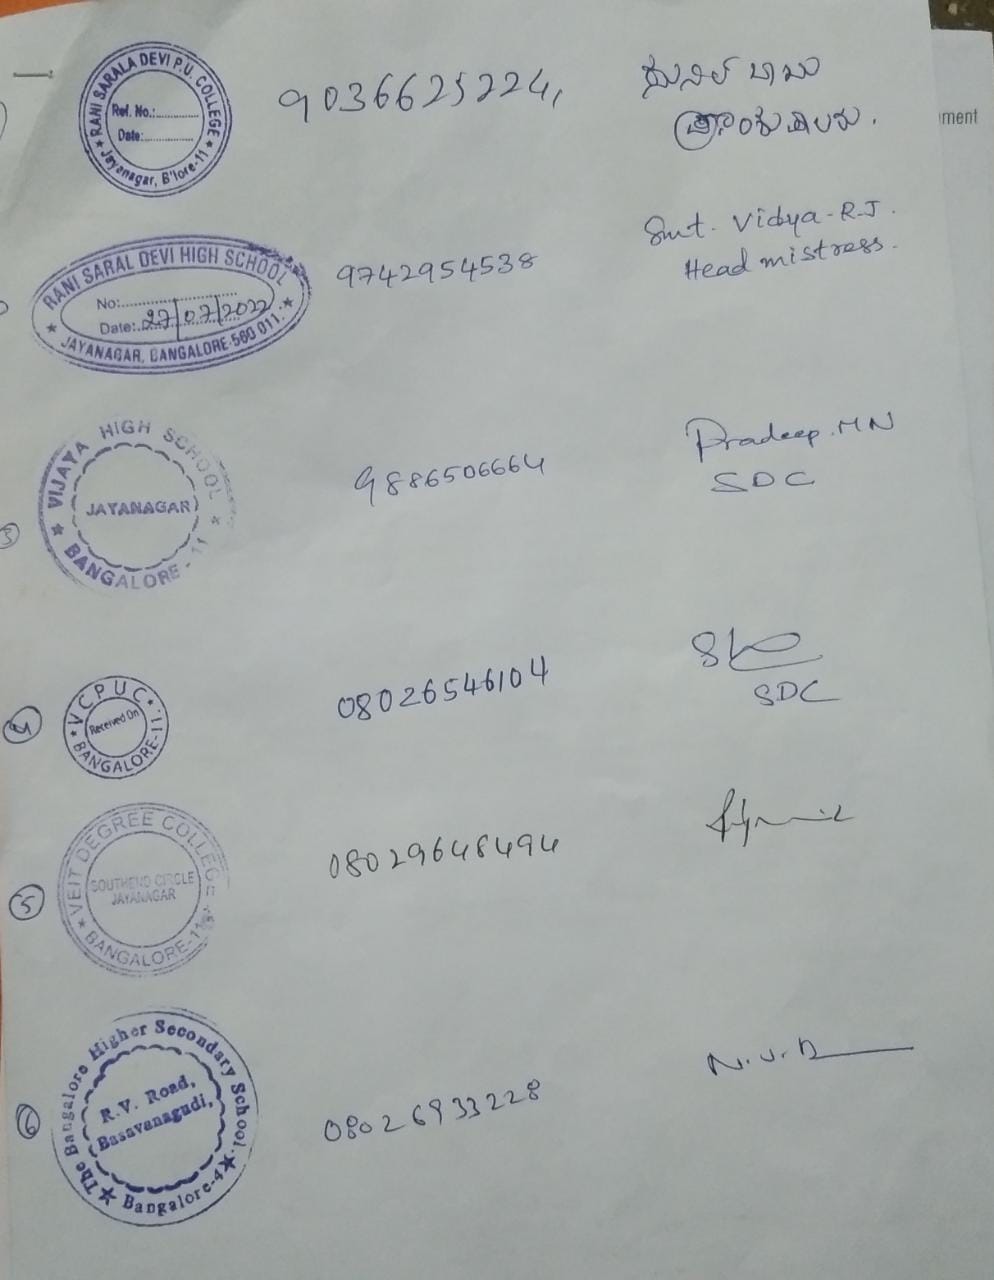 RANI SARALA DEVI P.U. COLLEGE
Ref. No.:
Date:
Jayanagar, B'lore-11
9036625224,
ಸುನಿಲ್ ಬಾಬು
ಪ್ರಾಂಶುಪಾಲರು.
ment
RANI SARAL DEVI HIGH SCHOOL
No:
Date: 27/07/2022
JAYANAGAR, BANGALORE-560 011.
9742954538
Smt. Vidya-R.J.
Head mistress.
3
VIJAYA HIGH SCHOOL
JAYANAGAR
BANGALORE-11
9886506664
Pradeep.MN
SDC
4
V C P U C
Received On
BANGALORE-11.
08026546104
SDC
5
VEIT DEGREE COLLEGE
SOUTHEND CIRCLE
JAYANAGAR
BANGALORE-11
08029648494
6
The Bangalore Higher Secondary School.
R.V. Road,
Basavanagudi,
Bangalore-4
08026933228